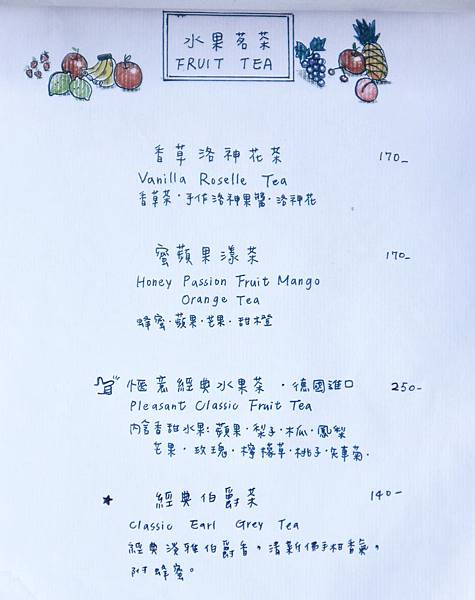 水果茗茶
FRUIT TEA
香草洛神花茶 170_
Vanilla Roselle Tea
香草茶·手作洛神果醬·洛神花
蜜蘋果漾茶 170_
Honey Passion Fruit Mango
Orange Tea
蜂蜜·蘋果·芒果·甜橙
愜意經典水果茶·德國進口 250-
Pleasant Classic Fruit Tea
內含香甜水果·蘋果·梨子·木瓜·鳳梨
芒果·玫瑰·檸檬草·桃子·矢車菊.
★ 經典伯爵茶 140-
Classic Earl Grey Tea
經典淡雅伯爵香。清新佛手柑香氣。
附蜂蜜。